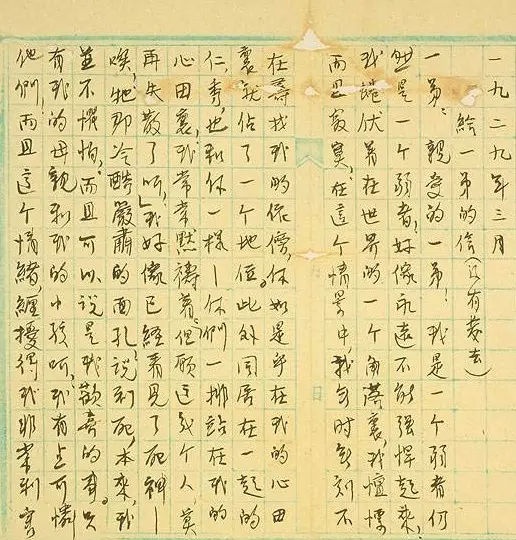 一九二九年三月
給一弟的信(沒有發去)
一弟：親愛的一弟！我是一個弱者何
一个弱者，好像永遠不能强悍起來，
我蜷伏着在世界的一个角落裏，我
而且寂寞，在這个情景中，我無时無刻不
在尋找我的偶像，你如是乎在我的心田
裏就佔了一个地位。此外同居在一起的
仁，秀，也和你一樣——你們一排站在我的
心田裏，我常常默禱着：但願這幾个人莫
再失散了呵，我好像已經看見了死神——
唉，牠那冷酷嚴肅的面孔，說到死，本來，我
並不懼怕，而且可以說是我歡喜的事。只
有我的母親和我的小孩呵，我有点可憐
他們，而且這个情緒，纏擾得我非常利害